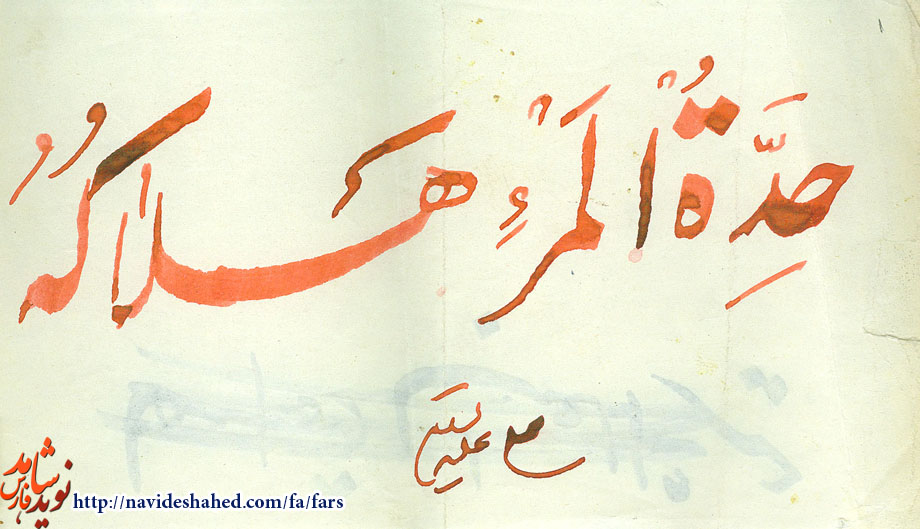 حِدَّةُ الْمَرْءِ هَلاکُهُ
علی علیه السلام
نوید شاهد
فارس
http://navideshahed.com/fa/fars